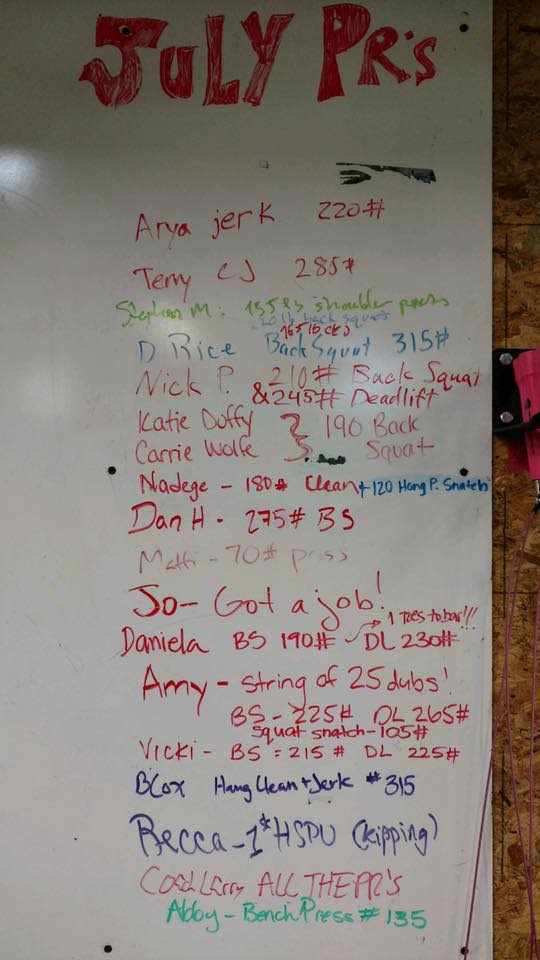 JULY PR's
Arya jerk 220#
Terry CJ 285#
Stephen M: 155 lb shoulder press
back squat
165 lb
D Rice Back Squat 315#
Nick P. 210# Back Squat
& 245# Deadlift
Katie Duffy
Carrie Wolfe
190 Back
Squat
Nadege - 180# Clean + 120 Hang P. Snatch
Dan H - 275# BS
70# press
Jo - Got a job!
1 Toes to bar!!!
Daniela BS 190# DL 230#
Amy - string of 25 dubs!
BS - 225# DL 265#
squat snatch - 105#
Vicki - BS = 215# DL 225#
BCox Hang Clean + Jerk #315
Becca - 1st HSPU (kipping)
Coach Larry ALL THE PR's
Abby - Bench Press # 135